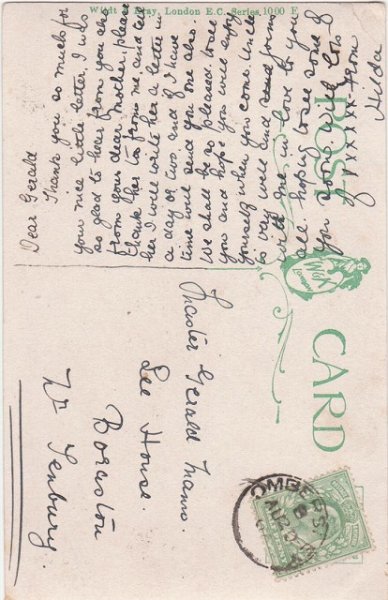 Wildt & Kray, London E.C. Series 1000
POST CARD
W&K
LONDON
Dear Gerald
Thank you so much for
your nice little letter, I was
so glad to hear from you also
from your dear Mother, please
thank her from me and tell
her I will write her a letter in
a day or two and if I have
time will send you one also.
We shall be so pleased to see
you and hope you will enjoy
yourself when you come Uncle
is very well and joins
with me in love to you
all hoping to see some of
you soon with lots
xxxxxx from
Hilda
Master Gerald
Lee House.
Boraston
Nr Tenbury.
OMBERS